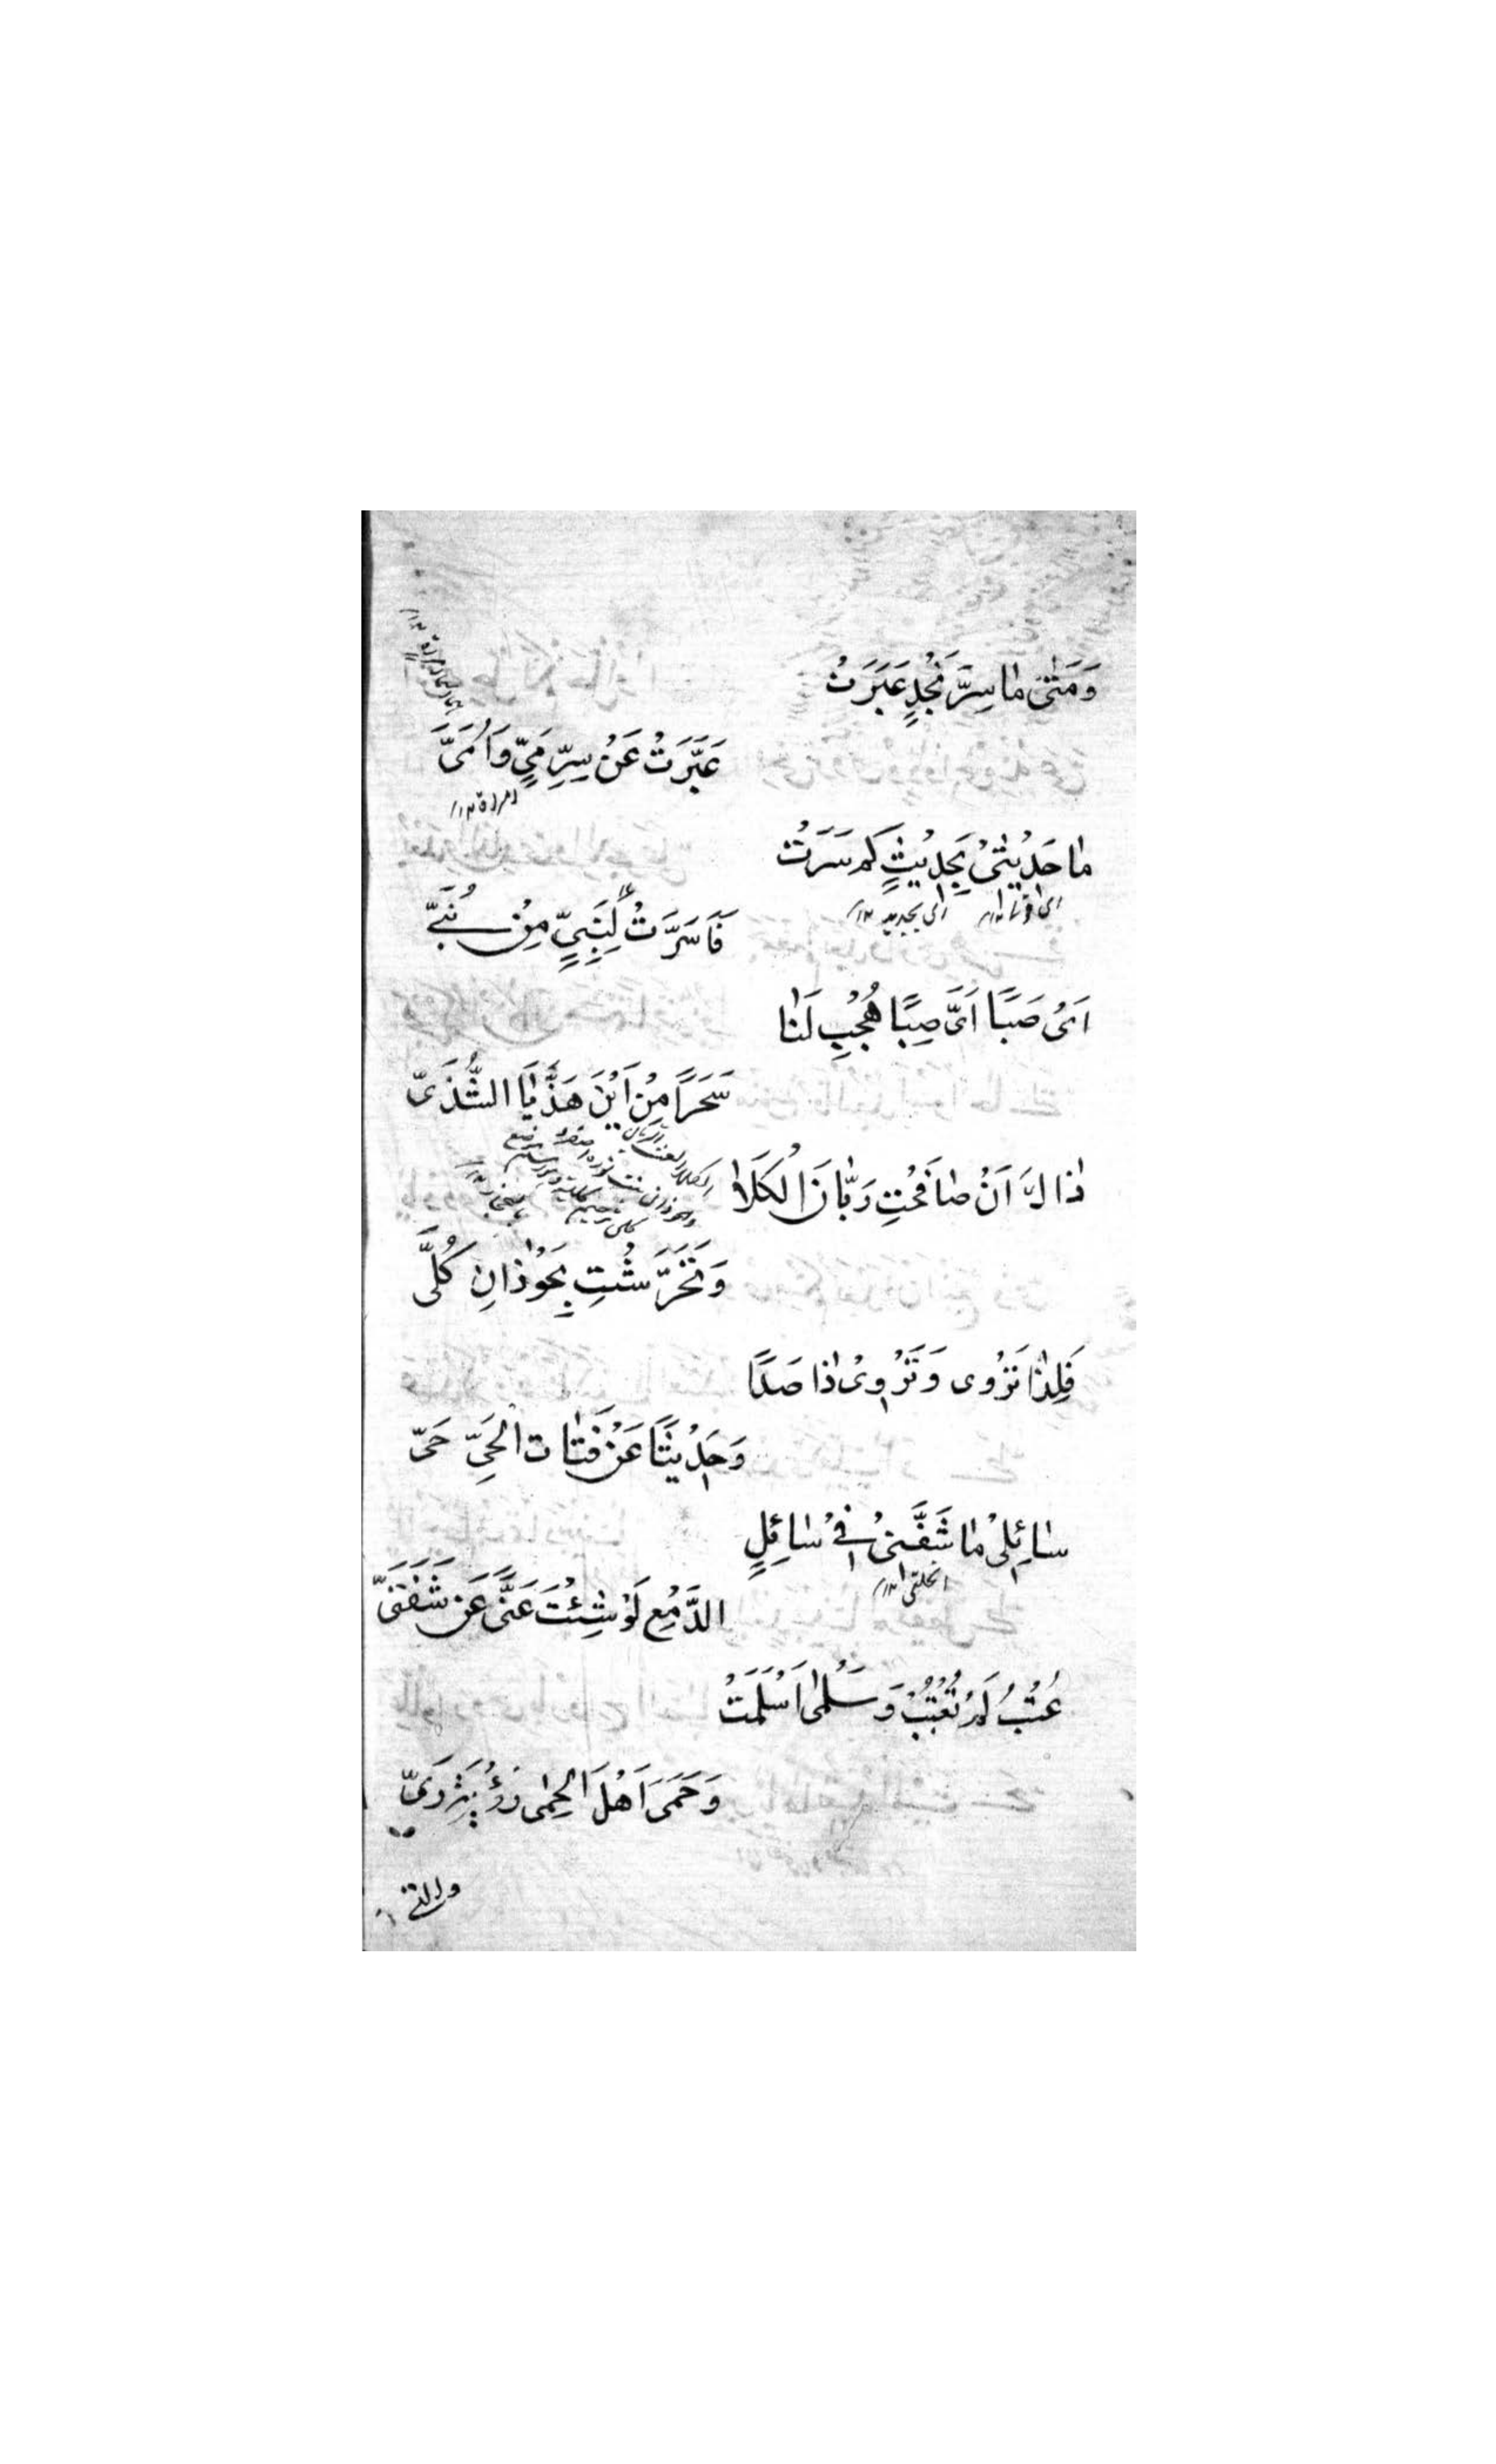 وَمَتٰى مٰا سِرَّ نَجْدٍ عَبَرَتْ
عَبَّرَتْ عَنْ سِرِّ مَيٍّ وَاُمَيَّ
امراة ۱۲
مٰا حَدِيْثٰىْ بِحَدِيْثٍ كَمْ سَرَتْ
فَاَسَرَّتْ لِنَبِيٍّ مِنْ نُبَيَّ
اَىْ صَبًا اَىَّ صِبًا هُجْبِ لَنٰا
سَحَرًا مِنْ اَيْنَ هَذَّيٰا الشُّذَىّ
ذٰالَ اَنْ صٰافَحْتِ رَيّٰانَ الْكَلَاٰ
وَتَحَرَّشْتِ بِحَوْذٰانِ كُلَىَّ
فَلِذٰا تَرْوى وَتَرْوِىْ ذٰا صَدًا
وَحَدِيْثًا عَنْ فَتٰاتِ الْحَىِّ حَىّ
سٰائِلِىْ مٰا شَفَّنىْ فِىْ سٰائِلِ
الدَّمْعِ لَوْ شِئْتَ غَنًى عَنْ شَفَتَىَّ
عُتْبُ لَمْ تُعْتِبْ وَسَلْمٰى اَسْلَمَتْ
وَحَمَىَ اَهْلُ الْحِمٰى رُؤْيَةَ رَىّ